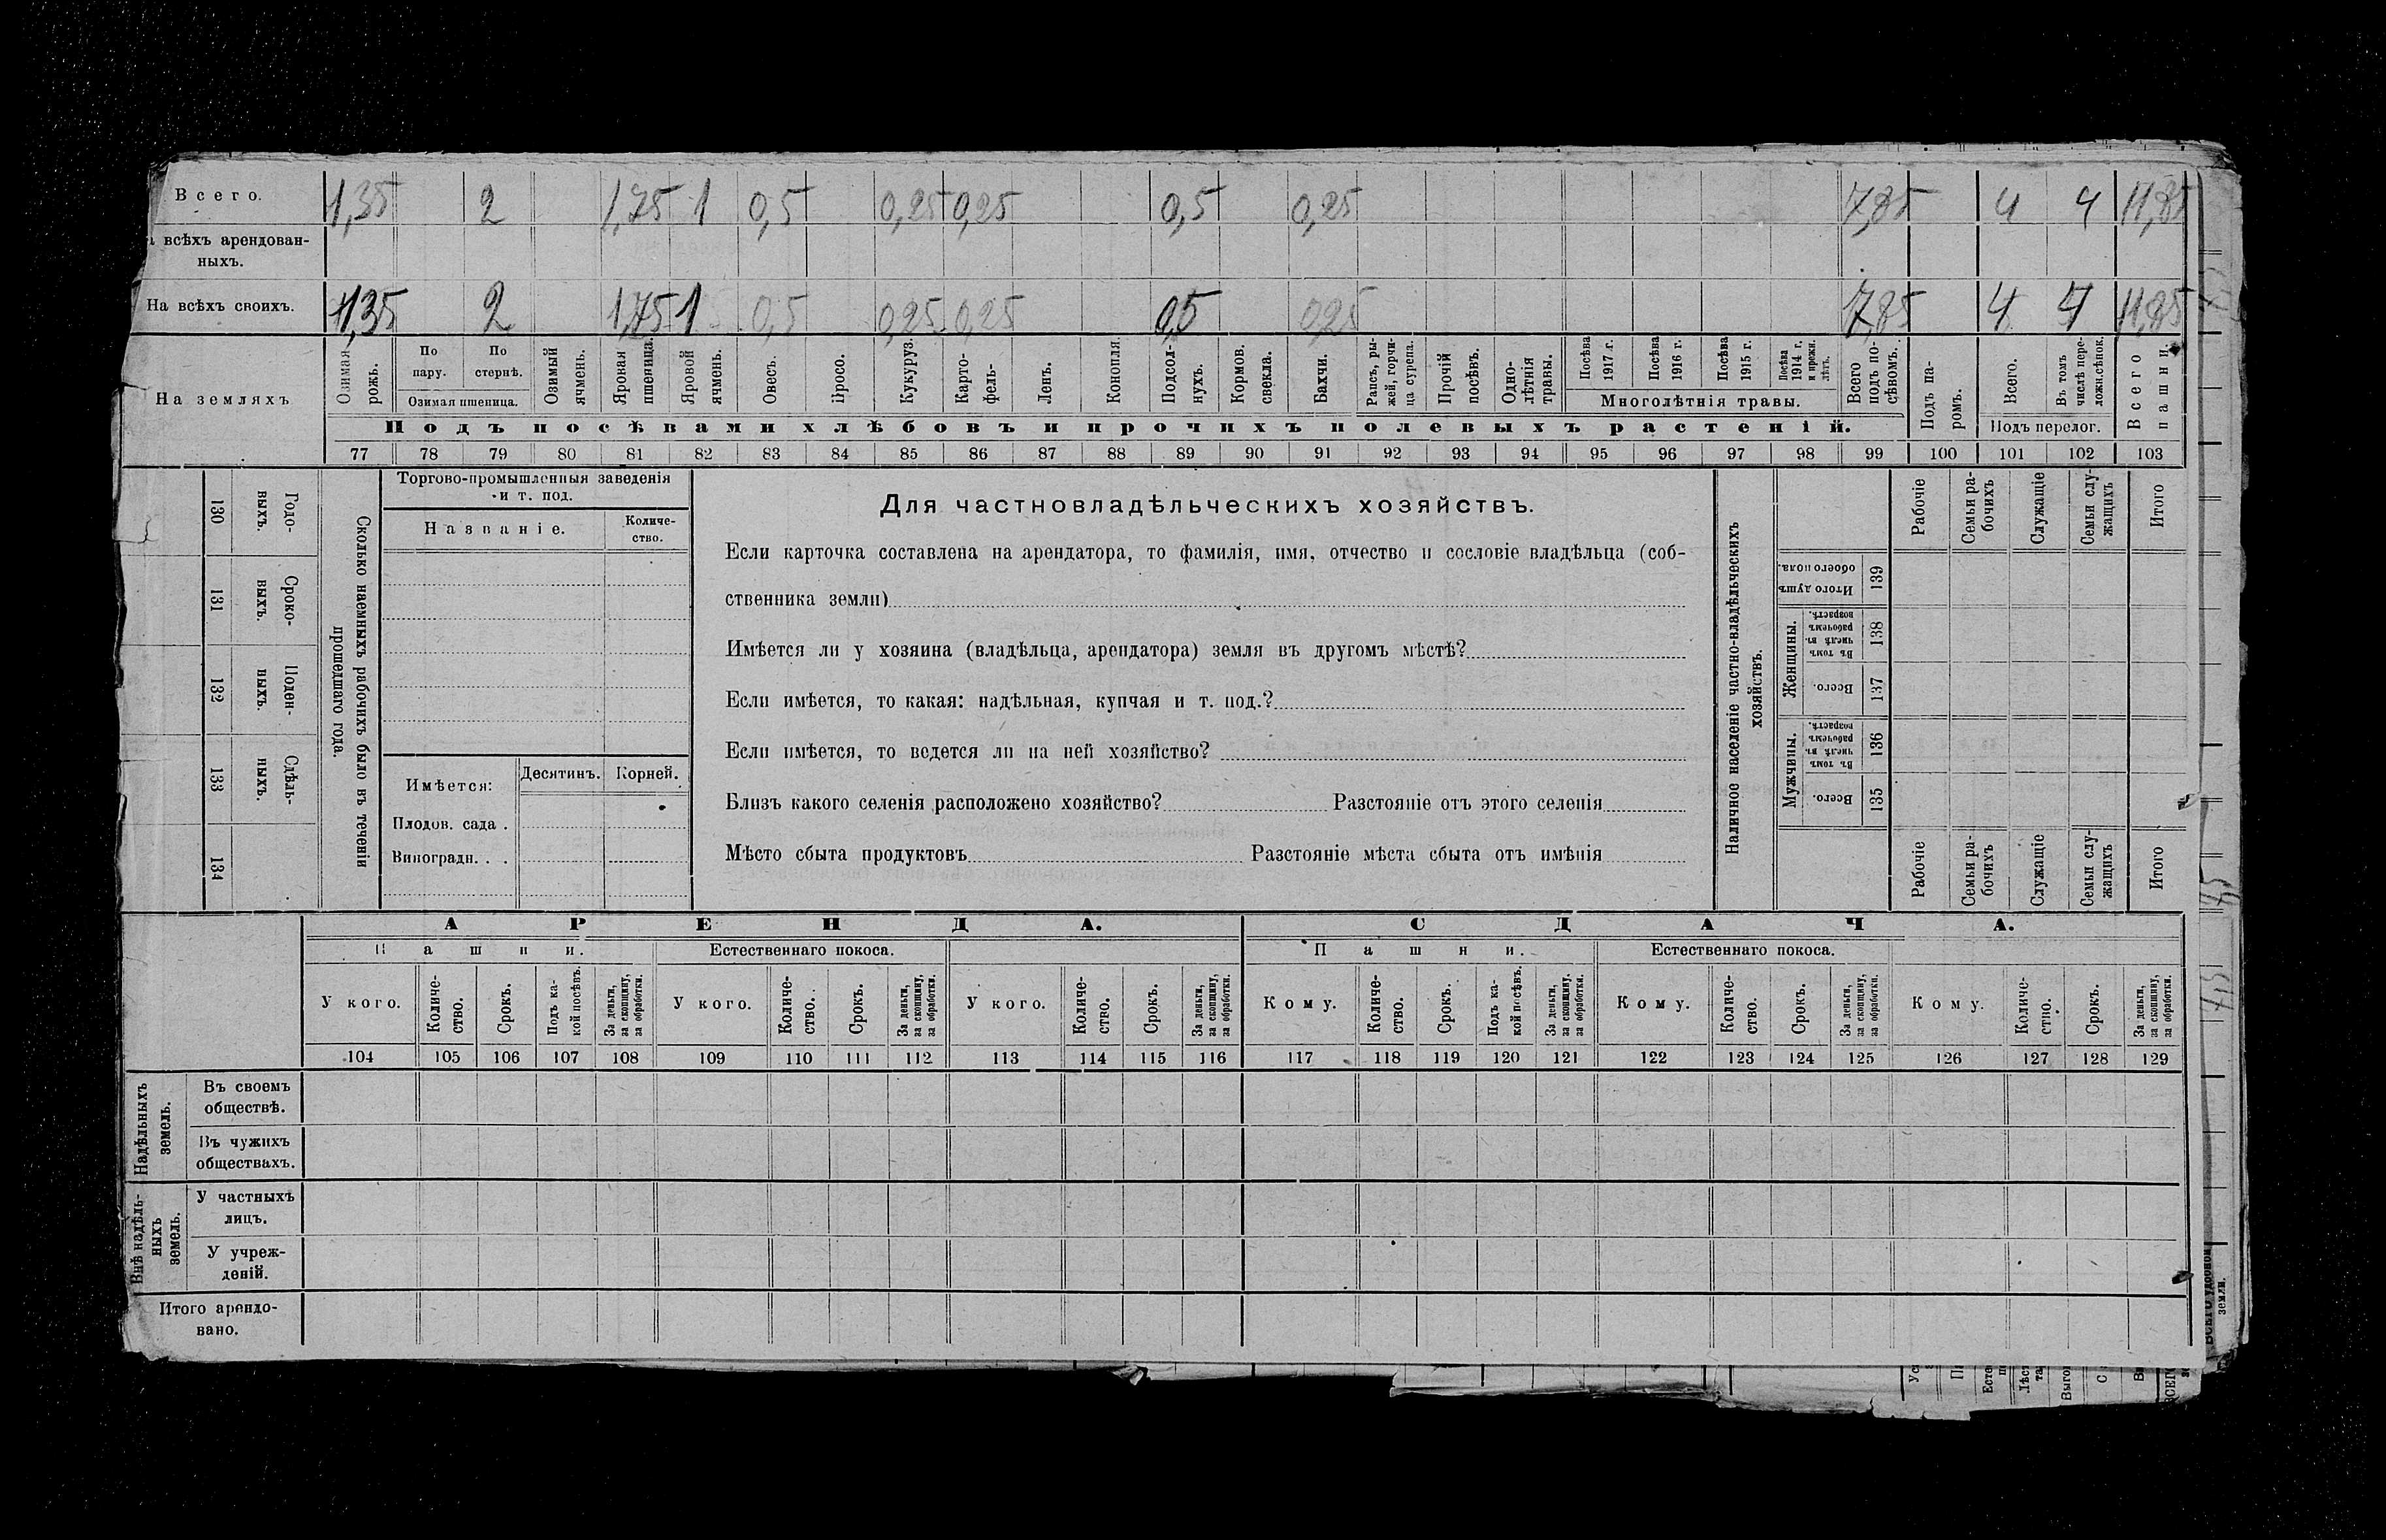 Всего. 1,35 2 1,75 1 0,5 0,25 0,25 0,5 0,25 7,85 4 4 11,85
всѣхъ арендован-
ныхъ.
На всѣхъ своихъ. 1,35 2 1,75 1 0,5 0,25 0,25 0,5 0,25 7,85 4 4 11,85
На земляхъ
Озимая рожь.
По пару.
По стернѣ.
Озимая пшеница.
Озимый ячмень.
Яровая пшеница.
Яровой ячмень.
Овесъ.
Просо.
Кукуруз.
Карто-
фель-
Ленъ.
Конопля.
Подсол-
нухъ.
Кормов. свекла.
Бахчи.
Рапсъ, ры-
жей, горчи-
ца сурепа.
Прочій посѣвъ.
Одно-
лѣтнія травы.
Посѣва 1917 г.
Посѣва 1916 г.
Посѣва 1915 г.
Посѣва 1914 г. и прежн. лѣтъ.
Многолѣтнія травы.
Всего подъ по-
сѣвомъ.
Подъ па-
ромъ.
Всего.
Въ томъ числѣ пере-
ложн.сѣнок.
Подъ перелог.
Всего пашни.
Подъ посѣвами хлѣбовъ и прочихъ полевыхъ растеній.
77 78 79 80 81 82 83 84 85 86 87 88 89 90 91 92 93 94 95 96 97 98 99 100 101 102 103
130 Годо-
выхъ.
131 Сроко-
выхъ.
132 Поден-
ныхъ.
133 Сдѣль-
ныхъ.
134
Сколько наемныхъ рабочихъ было въ теченіи
прошедшаго года.
Торгово-промышленныя заведенія
и т. под.
Названіе.
Количе-
ство.
Имѣется:
Десятинъ. Корней.
Плодов. сада .
Виноградн. . .
Для частновладѣльческихъ хозяйствъ.
Если карточка составлена на арендатора, то фамилія, имя, отчество и сословіе владѣльца (соб-
ственника земли)
Имѣется ли у хозяина (владѣльца, арендатора) земля въ другомъ мѣстѣ?
Если имѣется, то какая: надѣльная, купчая и т. под.?
Если имѣется, то ведется ли на ней хозяйство?
Близъ какого селенія расположено хозяйство? Разстояніе отъ этого селенія
Мѣсто сбыта продуктовъ Разстояніе мѣста сбыта отъ имѣнія
Наличное населеніе частно-владѣльческихъ
хозяйствъ.
Рабочіе
Семьи ра-
бочихъ
Служащіе
Семьи слу-
жащихъ
Итого
Итого душъ обоего пола. 139
Женщины.
Въ томъ числѣ въ рабочемъ возрастѣ. 138
Всего. 137
Мужчины.
Въ томъ числѣ въ рабочемъ возрастѣ. 136
Всего. 135
Рабочіе
Семьи ра-
бочихъ
Служащіе
Семьи слу-
жащихъ
Итого
АРЕНДА. СДАЧА.
Пашни. Естественнаго покоса. Пашни. Естественнаго покоса.
У кого.
Количе-
ство.
Срокъ.
Подъ ка-
кой посѣвъ.
За деньги,
за скопщину,
за обработки.
У кого.
Количе-
ство.
Срокъ.
За деньги,
за скопщину,
за обработки.
У кого.
Количе-
ство.
Срокъ.
За деньги,
за скопщину,
за обработки.
Кому.
Количе-
ство.
Срокъ.
Подъ ка-
кой посѣвъ.
За деньги,
за скопщину,
за обработки.
Кому.
Количе-
ство.
Срокъ.
За деньги,
за скопщину,
за обработки.
Кому.
Количе-
ство.
Срокъ.
За деньги,
за скопщину,
за обработки.
104 105 106 107 108 109 110 111 112 113 114 115 116 117 118 119 120 121 122 123 124 125 126 127 128 129
Надѣльныхъ
земель.
Въ своемъ
обществѣ.
Въ чужихъ
обществахъ.
Внѣ надѣль-
ныхъ
земель.
У частныхъ
лицъ.
У учреж-
деній.
Итого арендо-
вано.
земли.